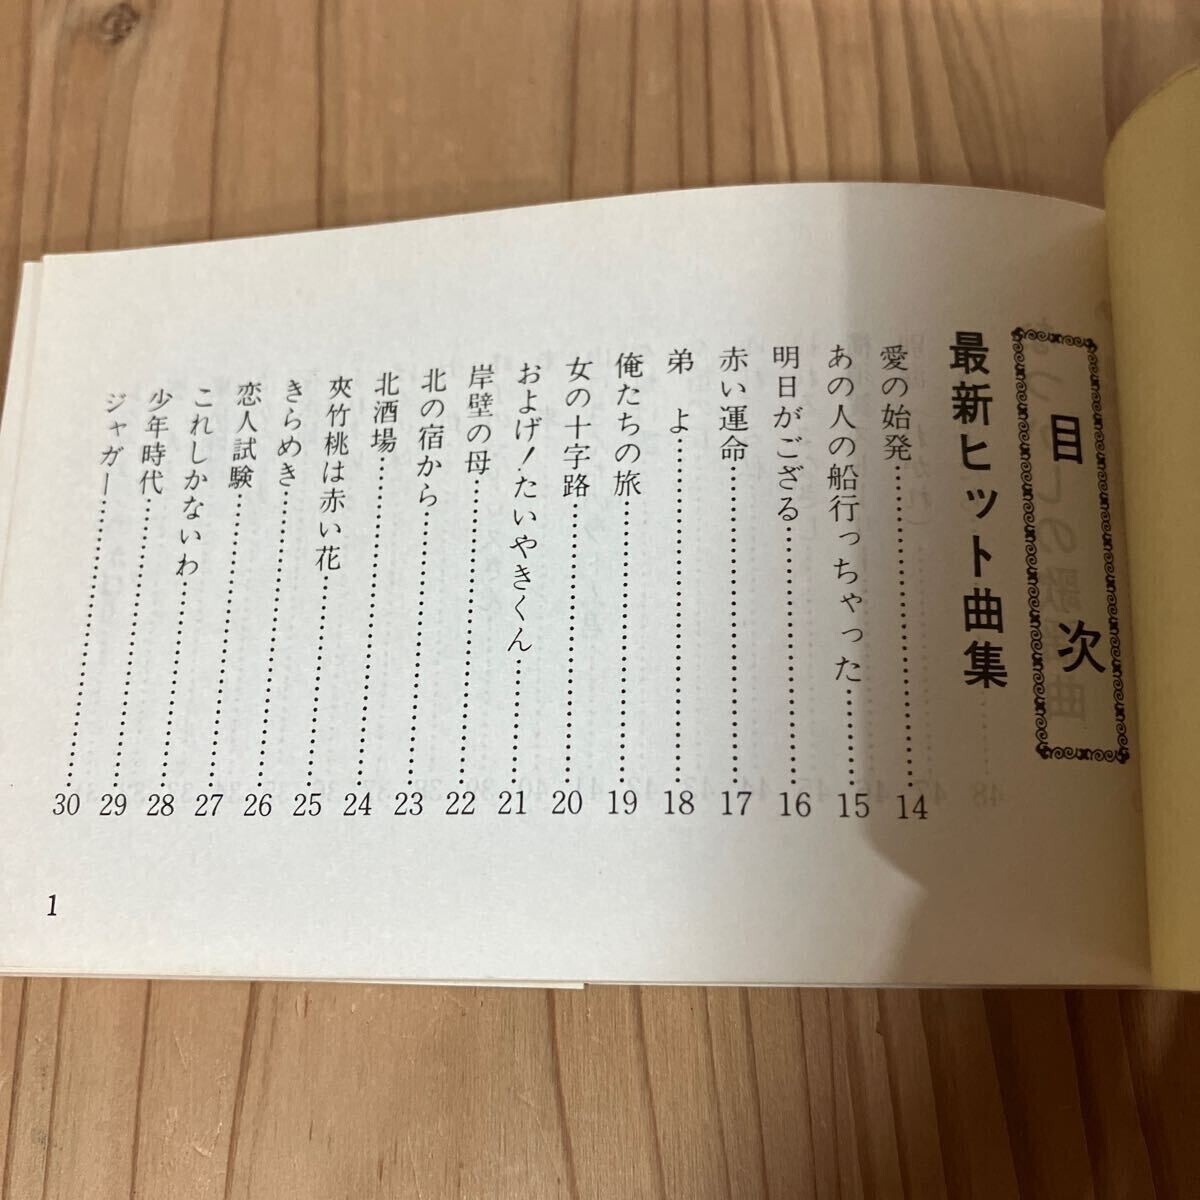 目次
最新ヒット曲集
愛の始発……………14
あの人の船行っちゃった……………15
明日がござる……………16
赤い運命……………17
弟よ……………18
俺たちの旅……………19
女の十字路……………20
およげ！たいやきくん……………21
岸壁の母……………22
北の宿から……………23
北酒場……………24
夾竹桃は赤い花……………25
きらめき……………26
恋人試験……………27
これしかないわ……………28
少年時代……………29
ジャガー……………30
1